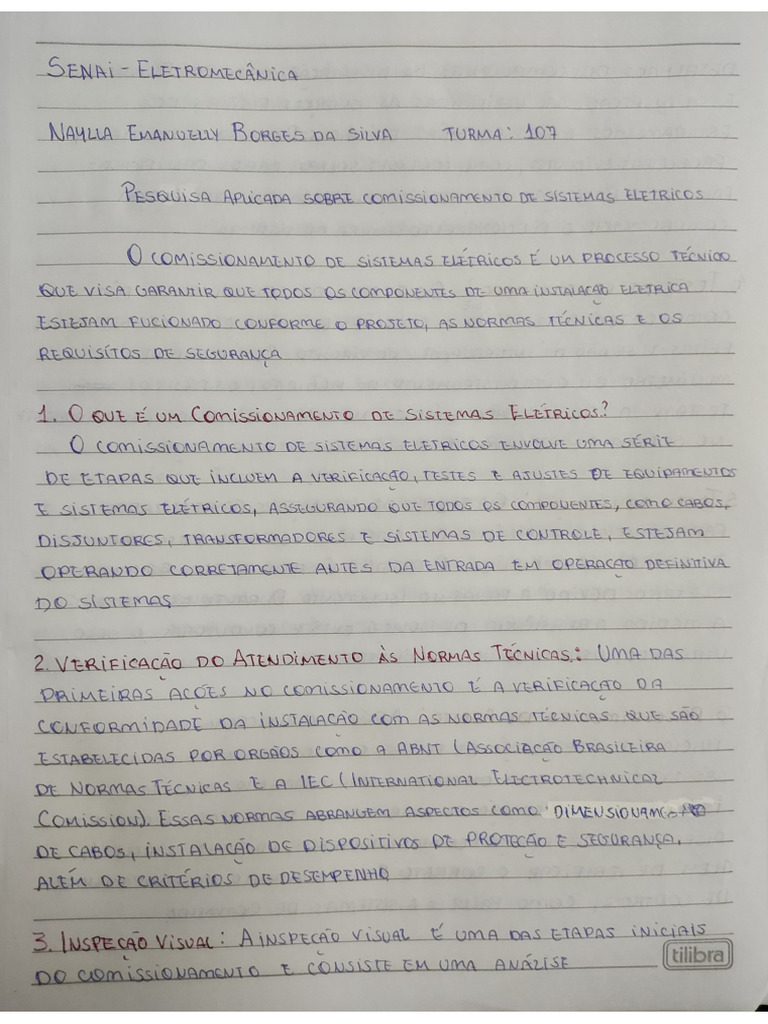 SENAI - ELETROMECÂNICA
NAYLLA EMANUELLY BORGES DA SILVA TURMA: 107
PESQUISA APLICADA SOBRE COMISSIONAMENTO DE SISTEMAS ELETRICOS
O COMISSIONAMENTO DE SISTEMAS ELÉTRICOS É UM PROCESSO TÉCNICO
QUE VISA GARANTIR QUE TODOS OS COMPONENTES DE UMA INSTALAÇÃO ELETRICA
ESTEJAM FUCIONADO CONFORME O PROJETO, AS NORMAS TÉCNICAS E OS
REQUISÍTOS DE SEGURANÇA
1. O QUE É UM COMISSIONAMENTO DE SISTEMAS ELÉTRICOS?
O COMISSIONAMENTO DE SISTEMAS ELETRICOS ENVOLVE UMA SÉRIE
DE ETAPAS QUE INCLUEM A VERIFICAÇÃO, TESTES E AJUSTES DE EQUIPAMENTOS
E SISTEMAS ELÉTRICOS, ASSEGURANDO QUE TODOS OS COMPONENTES, COMO CABOS,
DISJUNTORES, TRANSFORMADORES E SISTEMAS DE CONTROLE, ESTEJAM
OPERANDO CORRETAMENTE ANTES DA ENTRADA EM OPERAÇÃO DEFINITIVA
DO SISTEMAS
2. VERIFICAÇÃO DO ATENDIMENTO ÀS NORMAS TÉCNICAS: UMA DAS
PRIMEIRAS AÇÕES NO COMISSIONAMENTO É A VERIFICAÇÃO DA
CONFORMIDADE DA INSTALAÇÃO COM AS NORMAS TÉCNICAS QUE SÃO
ESTABELECIDAS POR ORGÃOS COMO A ABNT (ASSOCIAÇÃO BRASILEIRA
DE NORMAS TÉCNICAS E A IEC (INTERNATIONAL ELECTROTECHNICAL
COMISSION). ESSAS NORMAS ABRANGEM ASPECTOS COMO DIMENSIONAMENTO
DE CABOS, INSTALAÇÃO DE DISPOSITIVOS DE PROTEÇÃO E SEGURANÇA,
ALÉM DE CRITÉRIOS DE DESEMPENHO
3. INSPEÇÃO VISUAL: A INSPEÇÃO VISUAL É UMA DAS ETAPAS INICIAIS
DO COMISSIONAMENTO E CONSISTE EM UMA ANÁLISE
tilibra